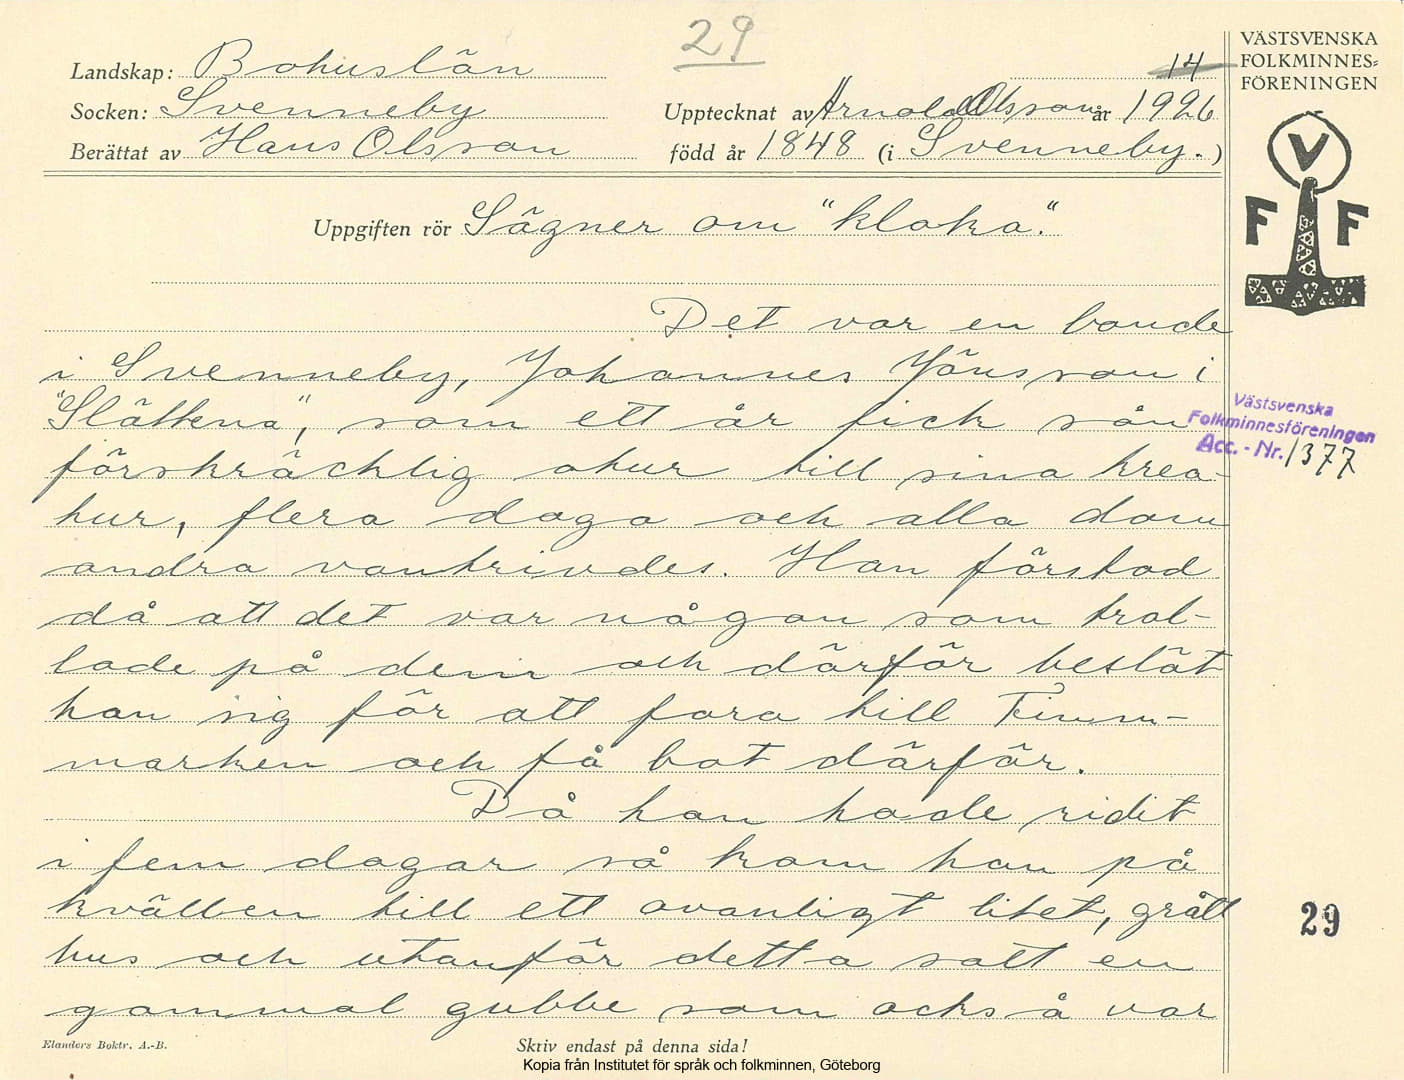 29
VÄSTSVENSKA
FOLKMINNES=
FÖRENINGEN
Landskap: Bohuslän 14
Socken: Svenneby Upptecknat av Arnold Olsson år 1926
Berättat av Hans Olsson född år 1848 (i Svenneby.)
V
F F
Uppgiften rör Sägner om "kloka".
Det var en bonde
i Svenneby, Johannes Jönsson i
"Slättena", som ett år fick sån
förskräcklig otur till sina krea-
tur, flera dogo och alla dom
andra vantrivdes. Han förstod
då att det var någon som trol-
lade på dem och därför beslöt
han sig för att fara till Finn-
marken och få bot därför.
Då han hade ridit
i fem dagar så kom han på
kvällen till ett ovanligt litet, grått
hus och utanför detta satt en
gammal gubbe som också var
Västsvenska
Folkminnesföreningen
Acc. - Nr. 1377
29
Elanders Boktr. A.-B.
Skriv endast på denna sida!
Kopia från Institutet för språk och folkminnen, Göteborg